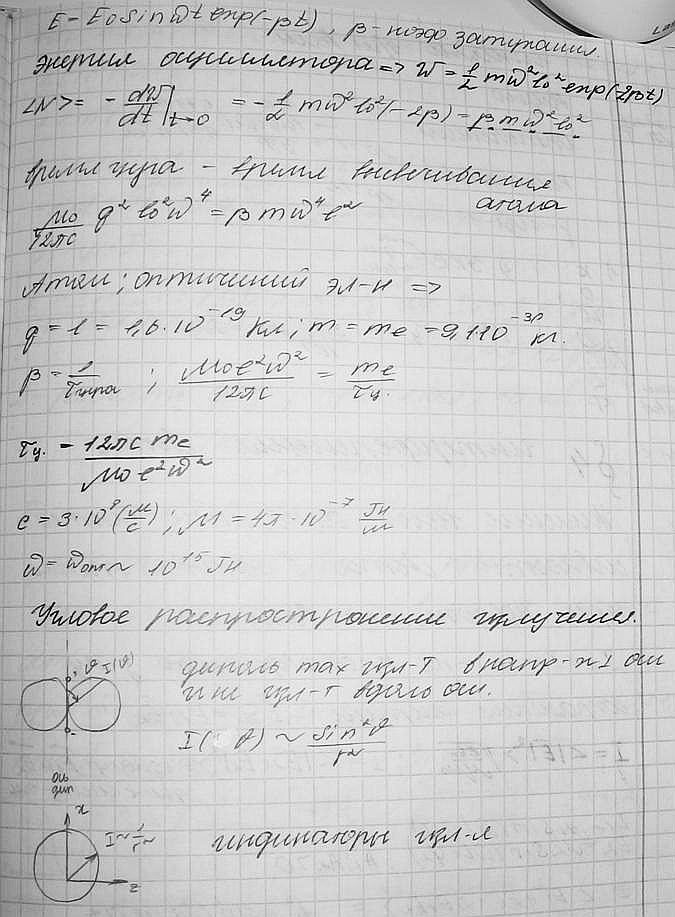 E = E₀ sin ωt exp(-βt), β - коэф затухания.
Энергия осциллятора => W = 1/2 mω²l₀² exp(-2βt)
<N> = - dW/dt |t→0 = - 1/2 mω²l₀²(-2β) = β mω²l₀²
время цуга - время высвечивания
атома
μ₀/12πc q²l₀²ω⁴ = β mω⁴l²
Атом; оптический эл-н =>
q = e = 1,6·10⁻¹⁹ Кл; m = me = 9,1·10⁻³¹ кг.
β = 1/τцуга ; μ₀e²ω²/12πc = me/τц.
τц. = 12πc me / μ₀e²ω²
c = 3·10⁸ (м/с); μ = 4π·10⁻⁷ Гн/м
ω = ωопт ~ 10¹⁵ Гц
Угловое распространение излучения.
ϑ I(ϑ)
диполь max изл-т в напр-и ⊥ оси
и не изл-т вдоль оси.
I(ϑ) ~ sin²ϑ/r²
ось
дип
x
I ~ 1/r²
z
индикатрисы изл-я